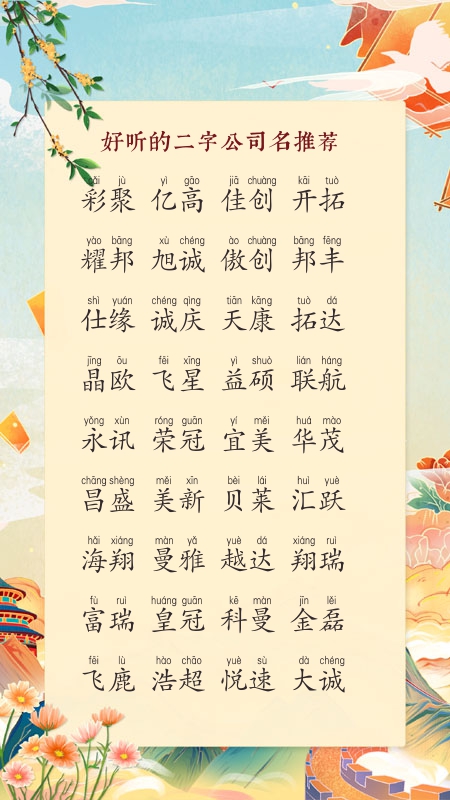 好听的二字公司名推荐
cǎi jù yì gāo jiā chuàng kāi tuò
彩聚 亿高 佳创 开拓
yào bāng xù chéng ào chuàng bāng fēng
耀邦 旭诚 傲创 邦丰
shì yuán chéng qìng tiān kāng tuò dá
仕缘 诚庆 天康 拓达
jīng ōu fēi xīng yì shuò lián háng
晶欧 飞星 益硕 联航
yǒng xùn róng guān yí měi huá mào
永讯 荣冠 宜美 华茂
chāng shèng měi xīn bèi lái huì yuè
昌盛 美新 贝莱 汇跃
hǎi xiáng màn yǎ yuè dá xiáng ruì
海翔 曼雅 越达 翔瑞
fù ruì huáng guān kē màn jīn lěi
富瑞 皇冠 科曼 金磊
fēi lù hào chāo yuè sù dà chéng
飞鹿 浩超 悦速 大诚